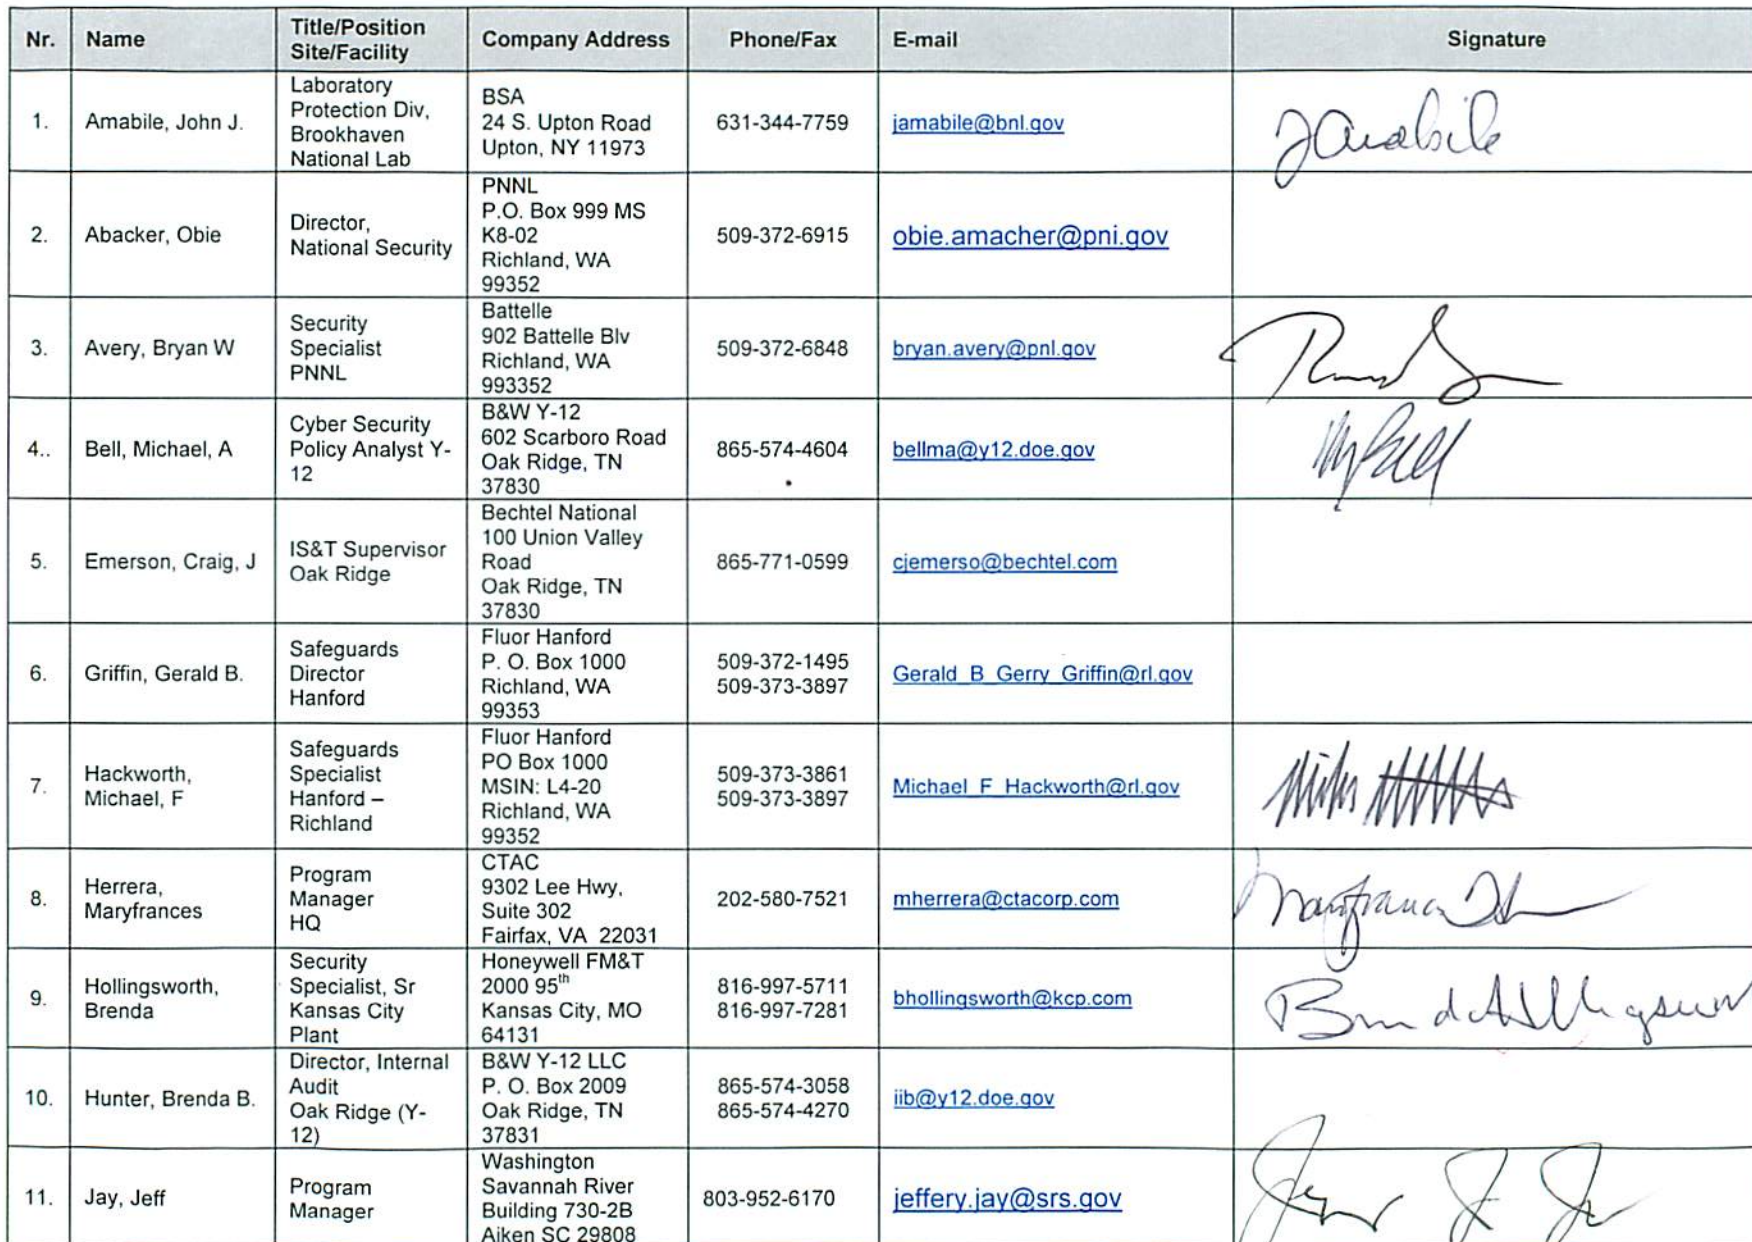 Nr. Name Title/Position Site/Facility Company Address Phone/Fax E-mail Signature
1. Amabile, John J. Laboratory Protection Div, Brookhaven National Lab BSA 24 S. Upton Road Upton, NY 11973 631-344-7759 jamabile@bnl.gov JAmabile
2. Abacker, Obie Director, National Security PNNL P.O. Box 999 MS K8-02 Richland, WA 99352 509-372-6915 obie.amacher@pni.gov
3. Avery, Bryan W Security Specialist PNNL Battelle 902 Battelle Blv Richland, WA 993352 509-372-6848 bryan.avery@pnl.gov
4.. Bell, Michael, A Cyber Security Policy Analyst Y-12 B&W Y-12 602 Scarboro Road Oak Ridge, TN 37830 865-574-4604 bellma@y12.doe.gov
5. Emerson, Craig, J IS&T Supervisor Oak Ridge Bechtel National 100 Union Valley Road Oak Ridge, TN 37830 865-771-0599 cjemerso@bechtel.com
6. Griffin, Gerald B. Safeguards Director Hanford Fluor Hanford P. O. Box 1000 Richland, WA 99353 509-372-1495 509-373-3897 Gerald_B_Gerry_Griffin@rl.gov
7. Hackworth, Michael, F Safeguards Specialist Hanford – Richland Fluor Hanford PO Box 1000 MSIN: L4-20 Richland, WA 99352 509-373-3861 509-373-3897 Michael_F_Hackworth@rl.gov
8. Herrera, Maryfrances Program Manager HQ CTAC 9302 Lee Hwy, Suite 302 Fairfax, VA 22031 202-580-7521 mherrera@ctacorp.com
9. Hollingsworth, Brenda Security Specialist, Sr Kansas City Plant Honeywell FM&T 2000 95th Kansas City, MO 64131 816-997-5711 816-997-7281 bhollingsworth@kcp.com
10. Hunter, Brenda B. Director, Internal Audit Oak Ridge (Y-12) B&W Y-12 LLC P. O. Box 2009 Oak Ridge, TN 37831 865-574-3058 865-574-4270 iib@y12.doe.gov
11. Jay, Jeff Program Manager Washington Savannah River Building 730-2B Aiken SC 29808 803-952-6170 jeffery.jay@srs.gov